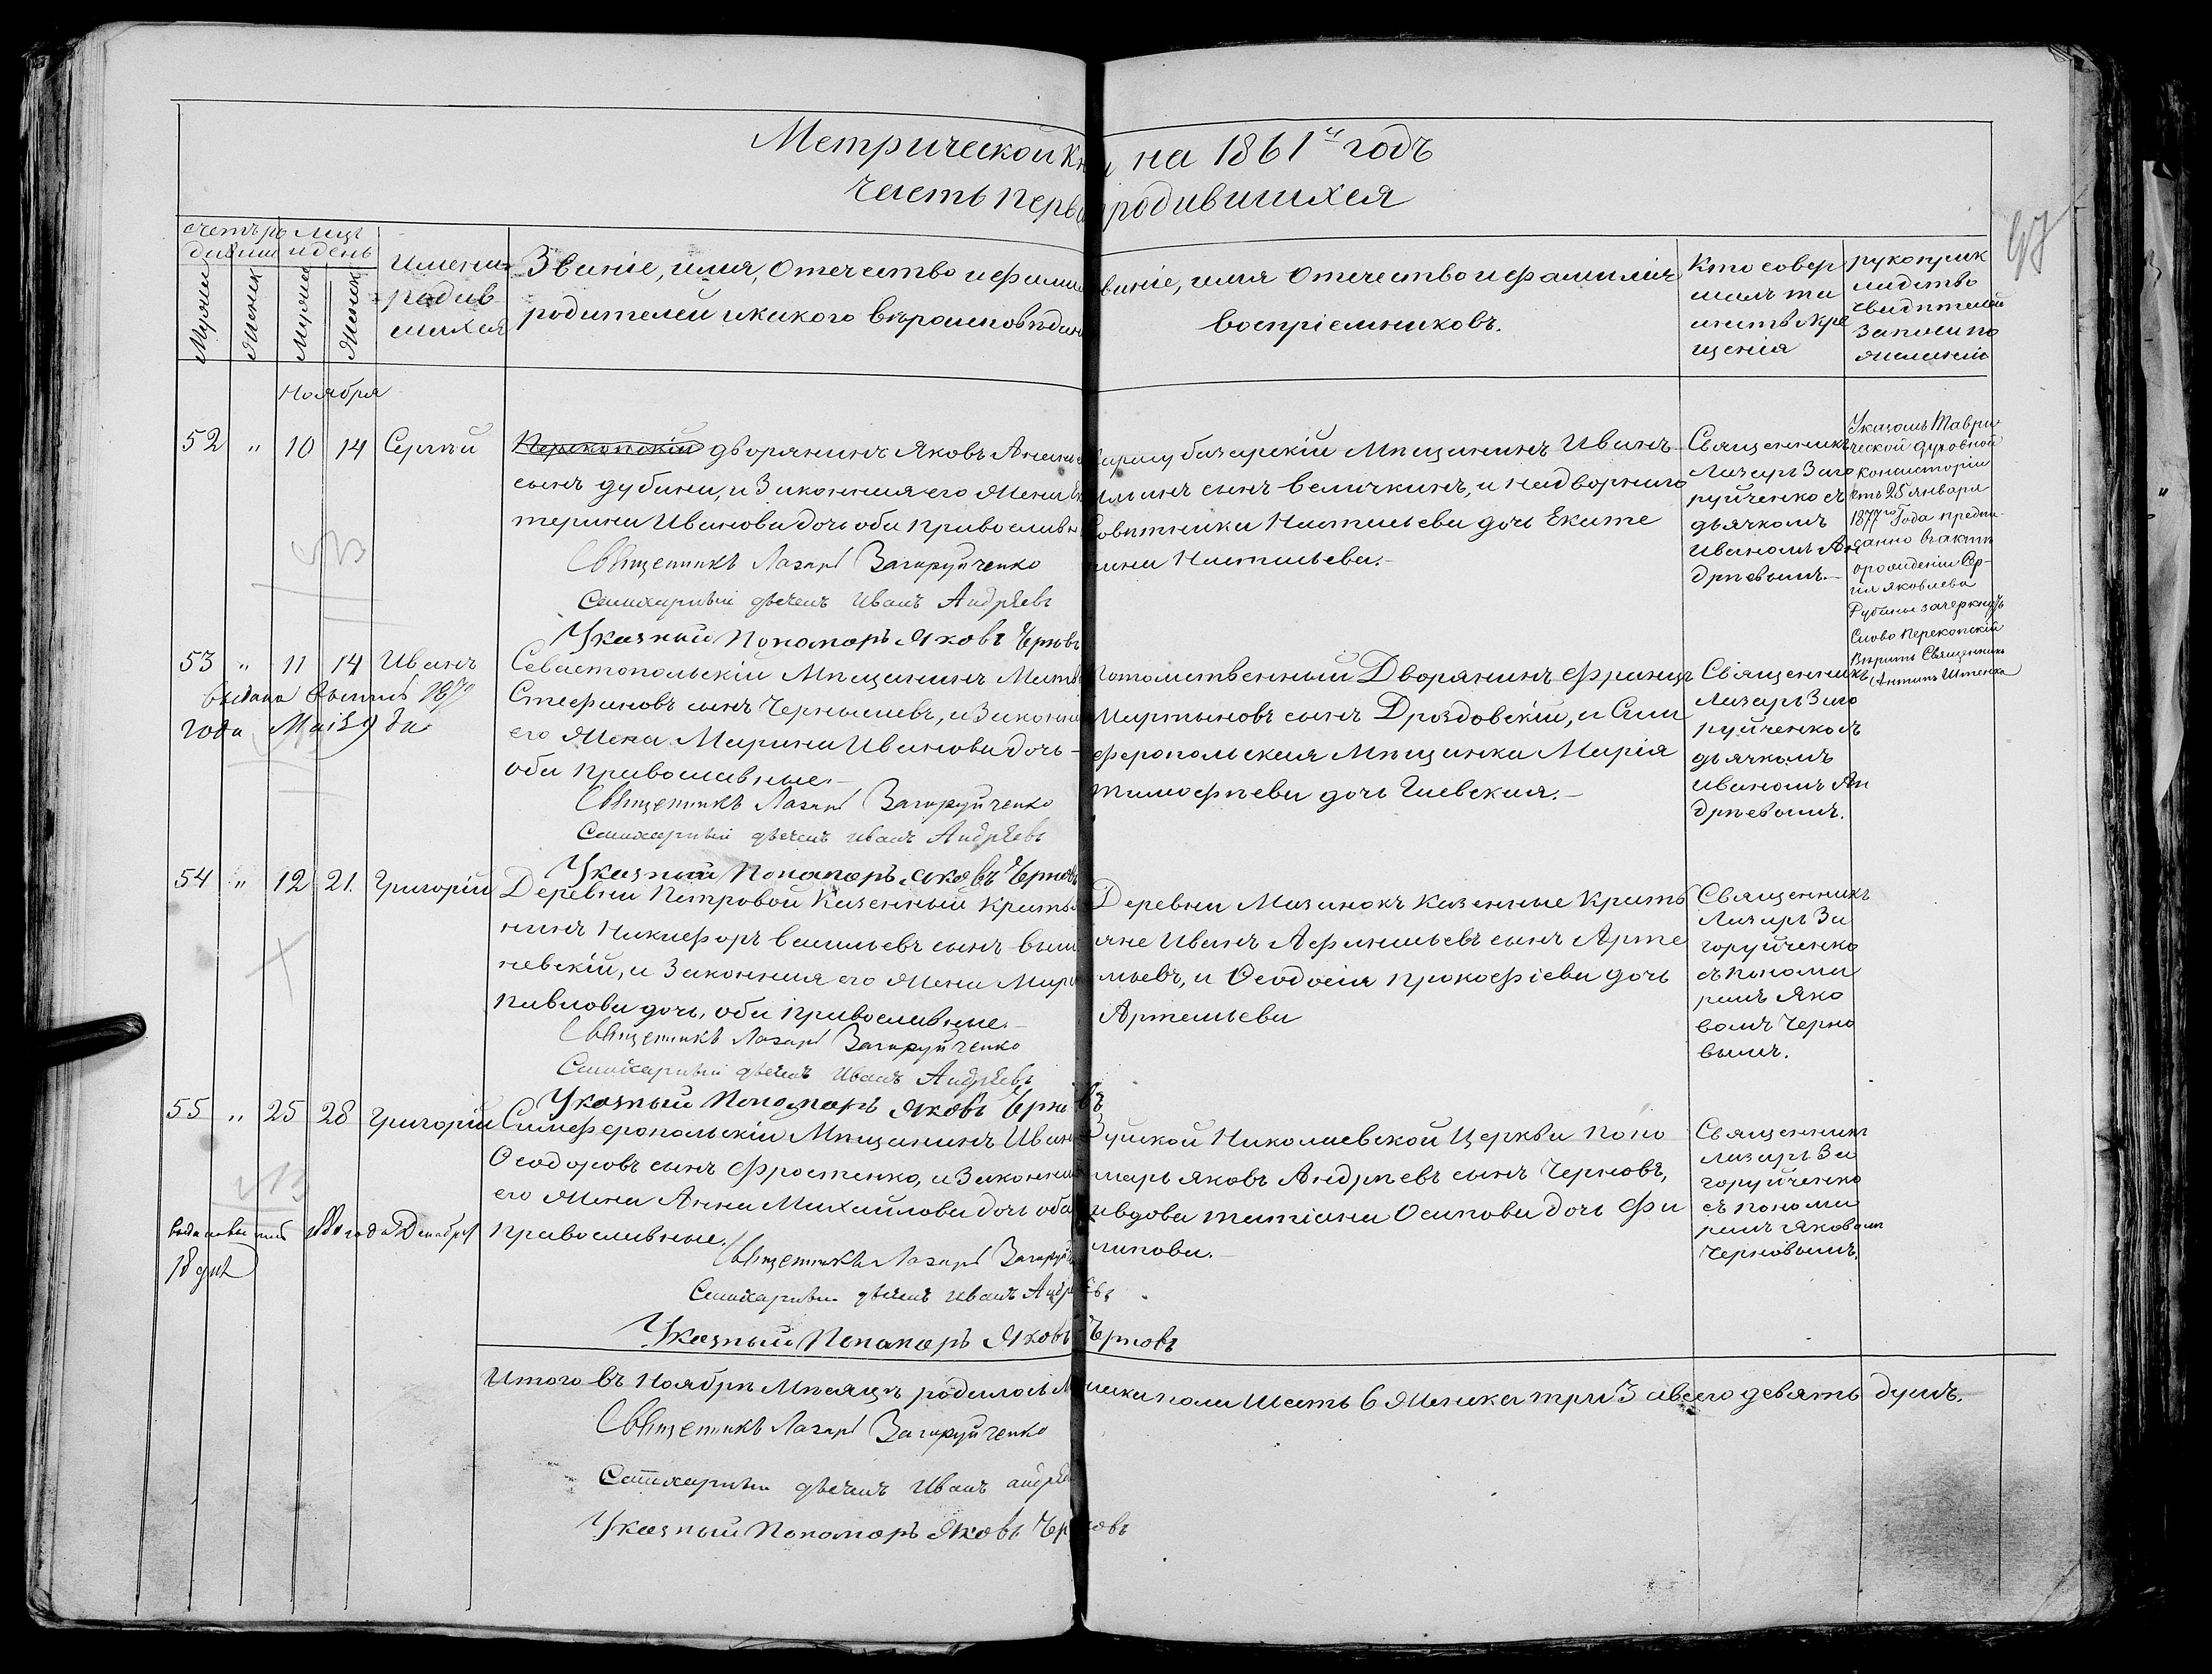 Метрической Кн и на 1861й годъ
Часть Перва родившихся
97
счетъ ро дивши
Мужеск
Женск
Месяцъ и день
Имена родив шихся
Званіе, имя, Отечество и фамил
родителей и какого вѣроисповѣдан
званіе, имя Отечество и фамилія
воспріемниковъ.
Кто совер
шалъ та
инств кре
щенія
рукоприк
ладство
свидѣтелей
записи по
желанію
Ноября
52 " 10 14 Сергѣй
Перекопскій дворянинъ Яковъ
сынъ Дубина, и Законная его Жена Ека
терина Иванова дочь оба православн
Священникъ Лазарь Загоруйченко
Стихарный дьячекъ Иванъ Андрѣевъ
Указный Пономарь Яковъ Черновъ
Карасубазарскій Мѣщанинъ Иванъ
Ильинъ сынъ Величкинъ, и Надворнаго
Совѣтника дочь Екате
рина
Священникъ
Лазарь Заго
руйченко съ
дьячкомъ
Иваномъ Ан
дрѣевымъ.
Указомъ Таври
ческой духовной
консисторіи
отъ 25 Января
1877го Года предпи-
санно въ актѣ
о рожденіи Сер-
гія Яковлева
Дубины зачеркнуть
Слово Перекопскій
Вѣрить Священникъ
53 " 11 14 Иванъ
Выдана
года Маія 9 дн
Севастопольскій Мѣщанинъ Матв
Стефановъ сынъ Чернышевъ, и Законная
его Жена Марина Иванова дочь
оба православные.
Священникъ Лазарь Загоруйченко
Стихарный дьячекъ Иванъ Андрѣевъ
Указный Пономарь Яковъ Черновъ
Потомственный Дворянинъ Францъ
Мартыновъ сынъ Дроздовскій, и Сим
феропольская Мѣщанка Марія
Тимофѣева дочь Гаевская.
Священникъ
Лазарь Заго
руйченко съ
дьячкомъ
Иваномъ Ан
дрѣевымъ.
54 " 12 21. Григорій
Деревни Петровой Казенный Крѣстья
нинъ Никифоръ Васильевъ сынъ Виш
невскій, и Законная его Жена Мар
Павлова дочь, оба православные.
Священникъ Лазарь Загоруйченко
Стихарный дьячекъ Иванъ Андрѣевъ
Указный Пономарь Яковъ Черновъ
Деревни Мазанокъ Казенные Крѣсть
яне Иванъ Афанасьевъ сынъ Арте
мьевъ, и Ѳеодосія Прокофіева дочь
Артемьева
Священникъ
Лазарь За
горуйченко
съ понома
ремъ Яко
вомъ Черно
вымъ.
55 " 25 28 Григорій
Выдана года Декабря
18 дня
Симферопольскій Мѣщанинъ Иванъ
Ѳеодоровъ сынъ Фростенко, и Законная
его Жена Анна Михайлова дочь оба
православные.
Священникъ Лазарь Загоруй
Стихарный дьячекъ Иванъ Андрѣевъ
Указный Пономарь Яковъ Черновъ
Зуйской Николаевской Церкви Поно
марь Яковъ Андрѣевъ сынъ Черновъ,
и вдова Татіана Осипова дочь Фи
липова.
Священникъ
Лазарь За
горуйченко
съ понома
ремъ Яковомъ
Черновымъ.
Итого въ Ноябрѣ Мѣсяцѣ родилось Мужеска пола Шесть 6 Женска три 3 а всего девять душъ.
Священникъ Лазарь Загоруйченко
Стихарный дьячекъ Иванъ Андрѣе
Указный Пономарь Яковъ Черновъ